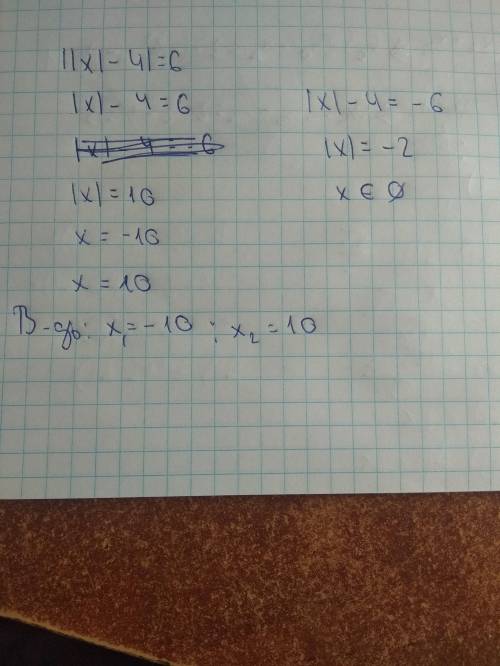 ||x| - 4| = 6
|x| - 4 = 6
|x| = 10
x = -10
x = 10
|x| - 4 = -6
|x| = -2
x ∈ ∅
В-дь: x₁ = -10 ; x₂ = 10